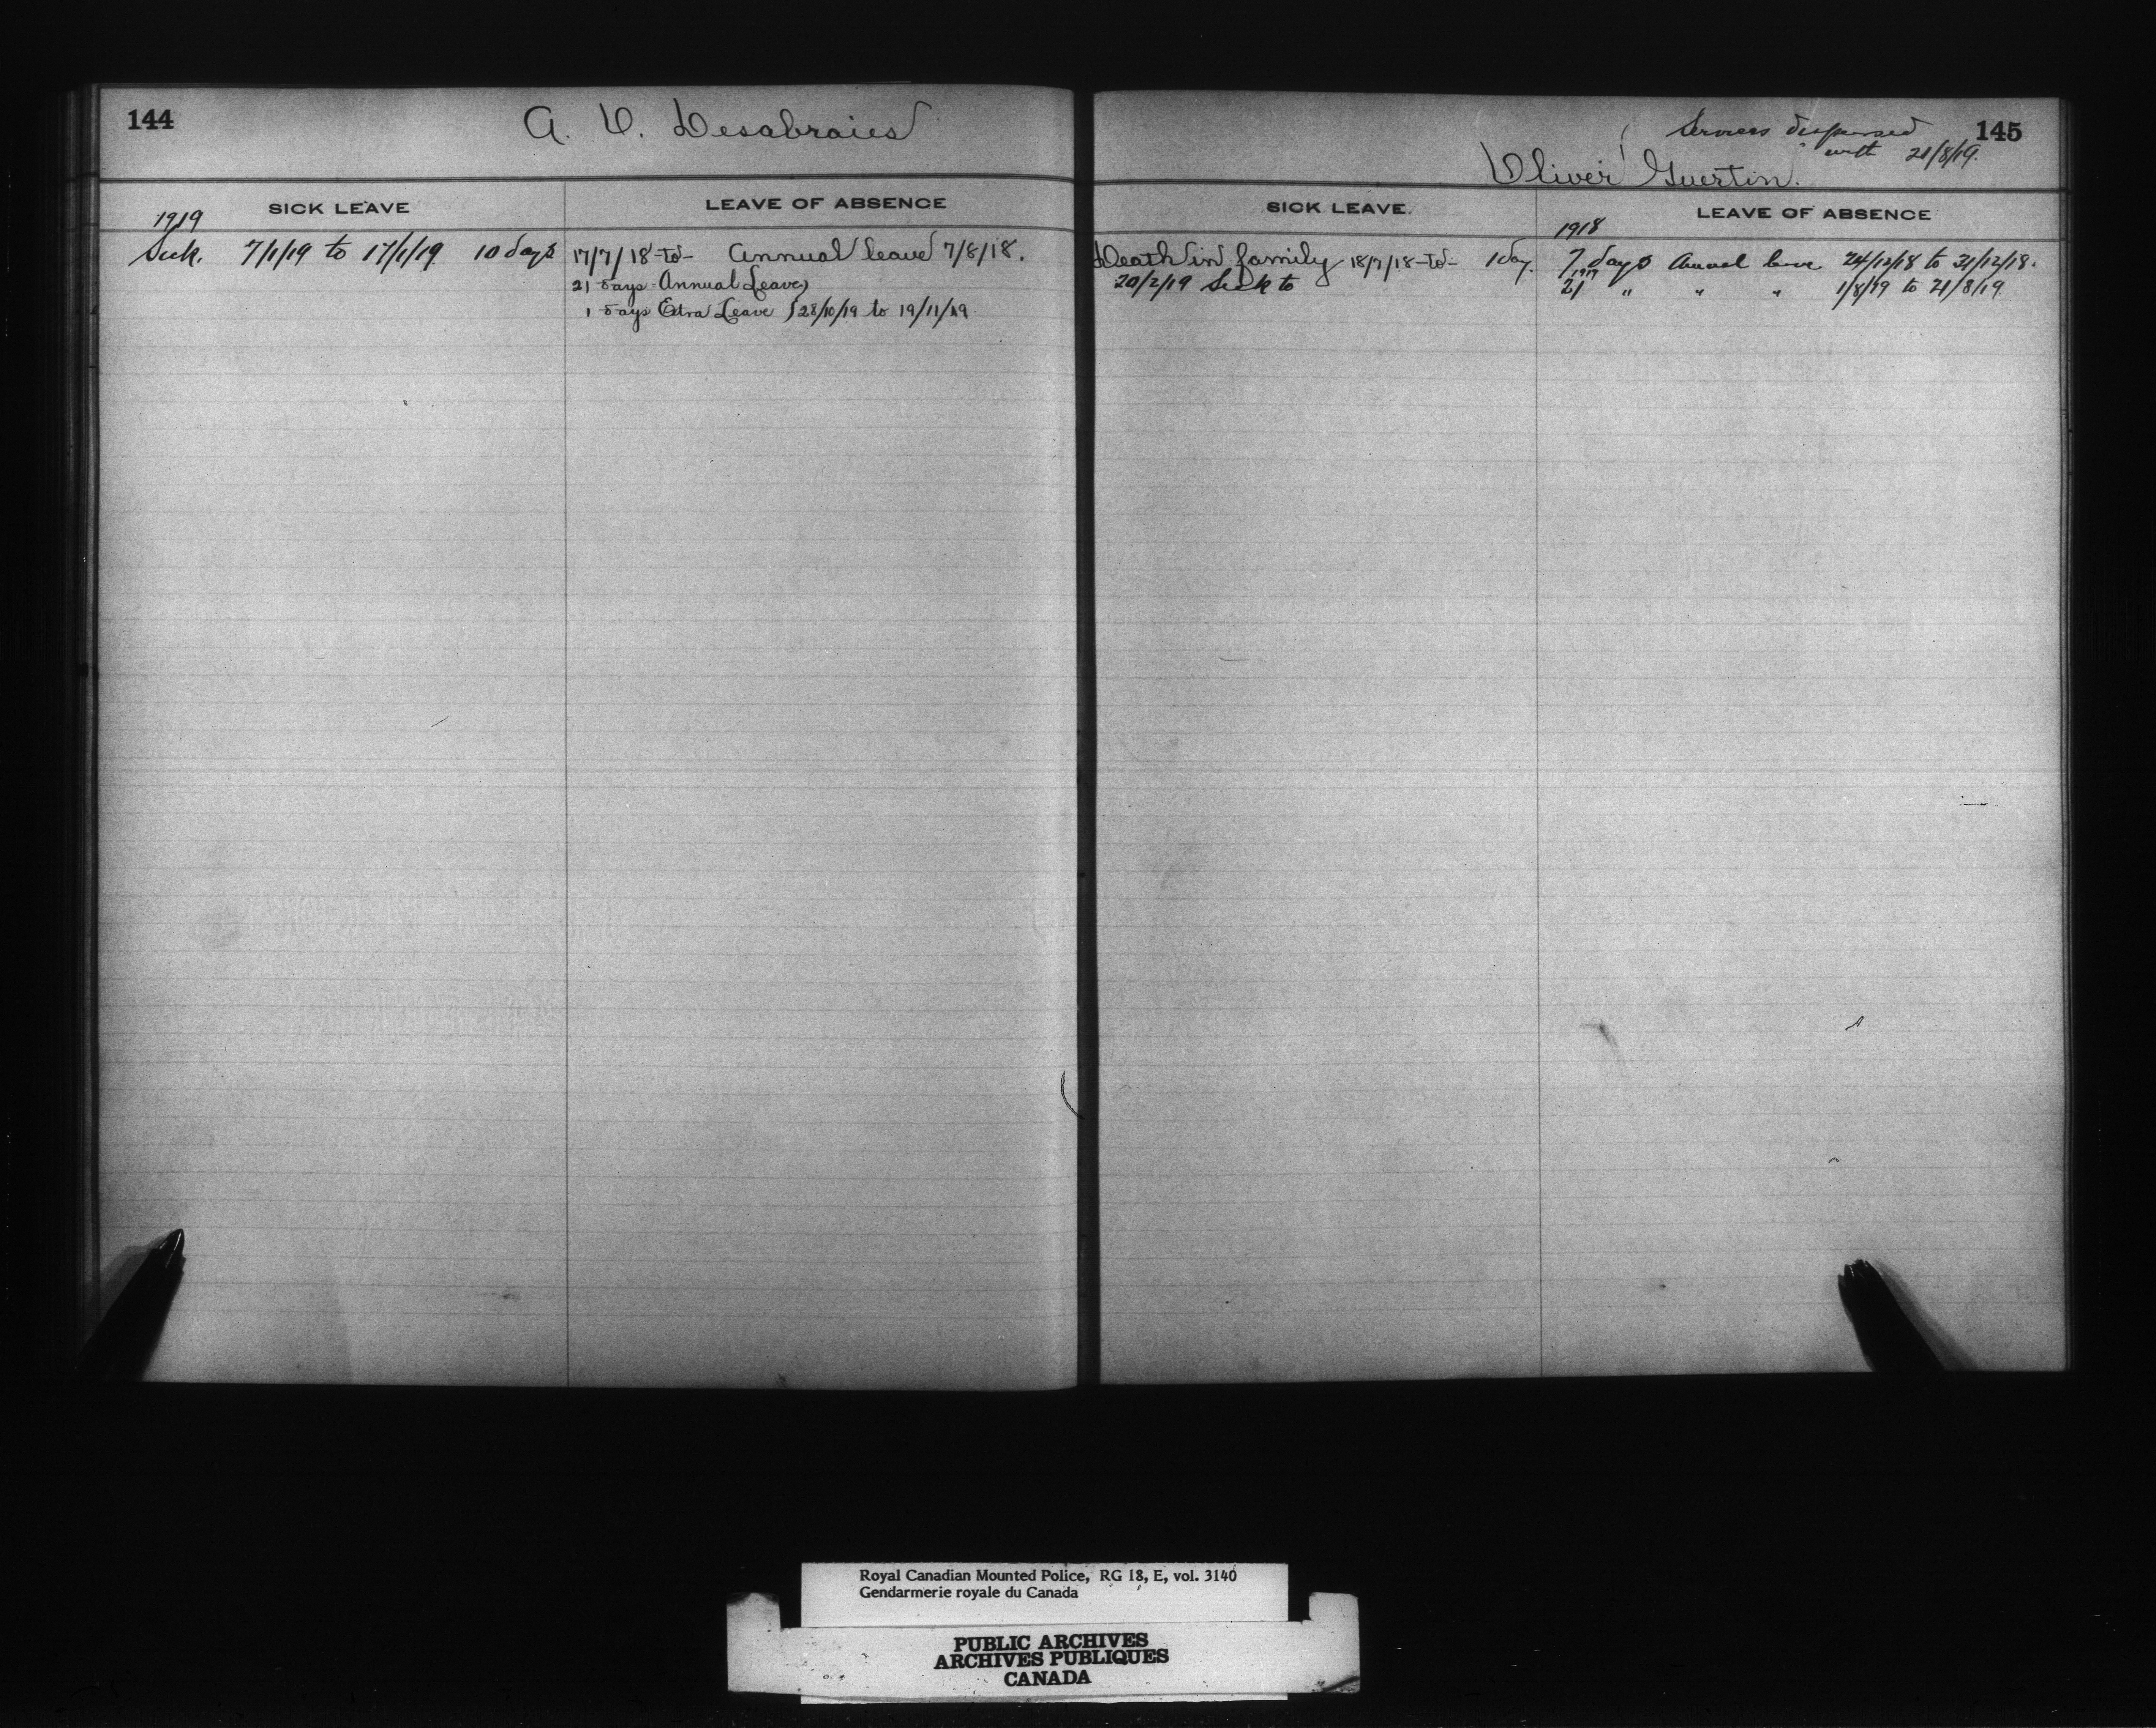 144
A. V. Desabraies
SICK LEAVE
LEAVE OF ABSENCE
1919
Sick. 7/1/19 to 17/1/19 10 days
17/7/18 -to- Annual leave 7/8/18.
21 days Annual Leave)
1 days Extra Leave } 28/10/19 to 19/11/19
145
Services dispensed
with 21/8/19.
Oliver Guertin.
SICK LEAVE.
LEAVE OF ABSENCE
Death in family 18/7/18 -to- 1 day.
20/2/19 Sick to
1918
7 days Annual leave 24/12/18 to 31/12/18.
1919
21 " " " 1/8/19 to 21/8/19.
Royal Canadian Mounted Police, RG 18, E, vol. 3140
Gendarmerie royale du Canada
PUBLIC ARCHIVES
ARCHIVES PUBLIQUES
CANADA